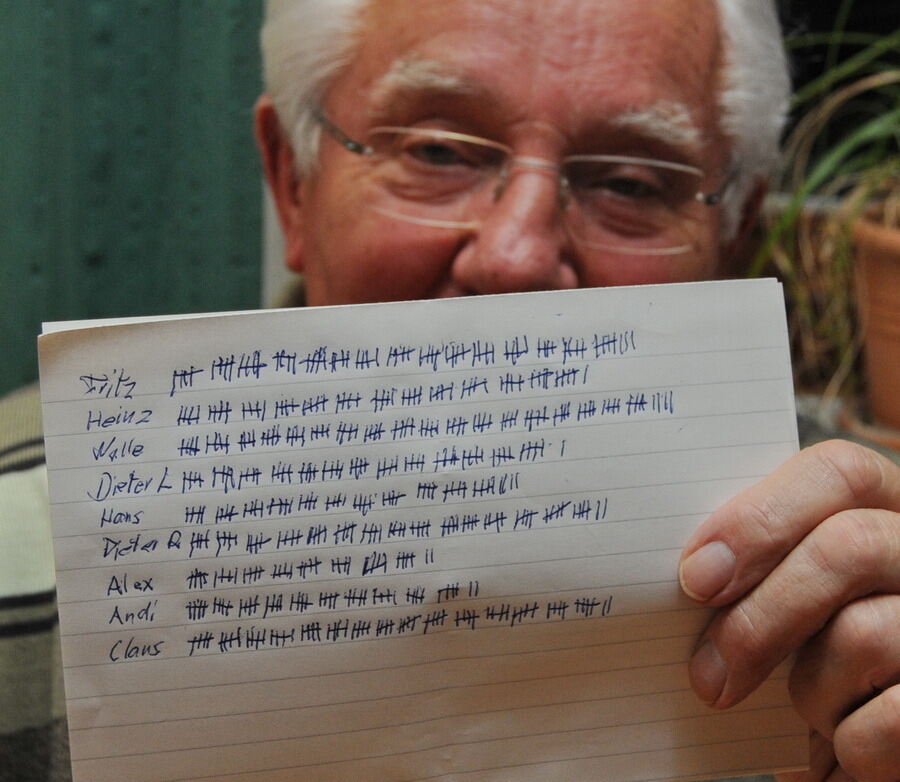 Fritz
Heinz
Nalle
Dieter L
Hans
Dieter R
Alex
Andi
Claus